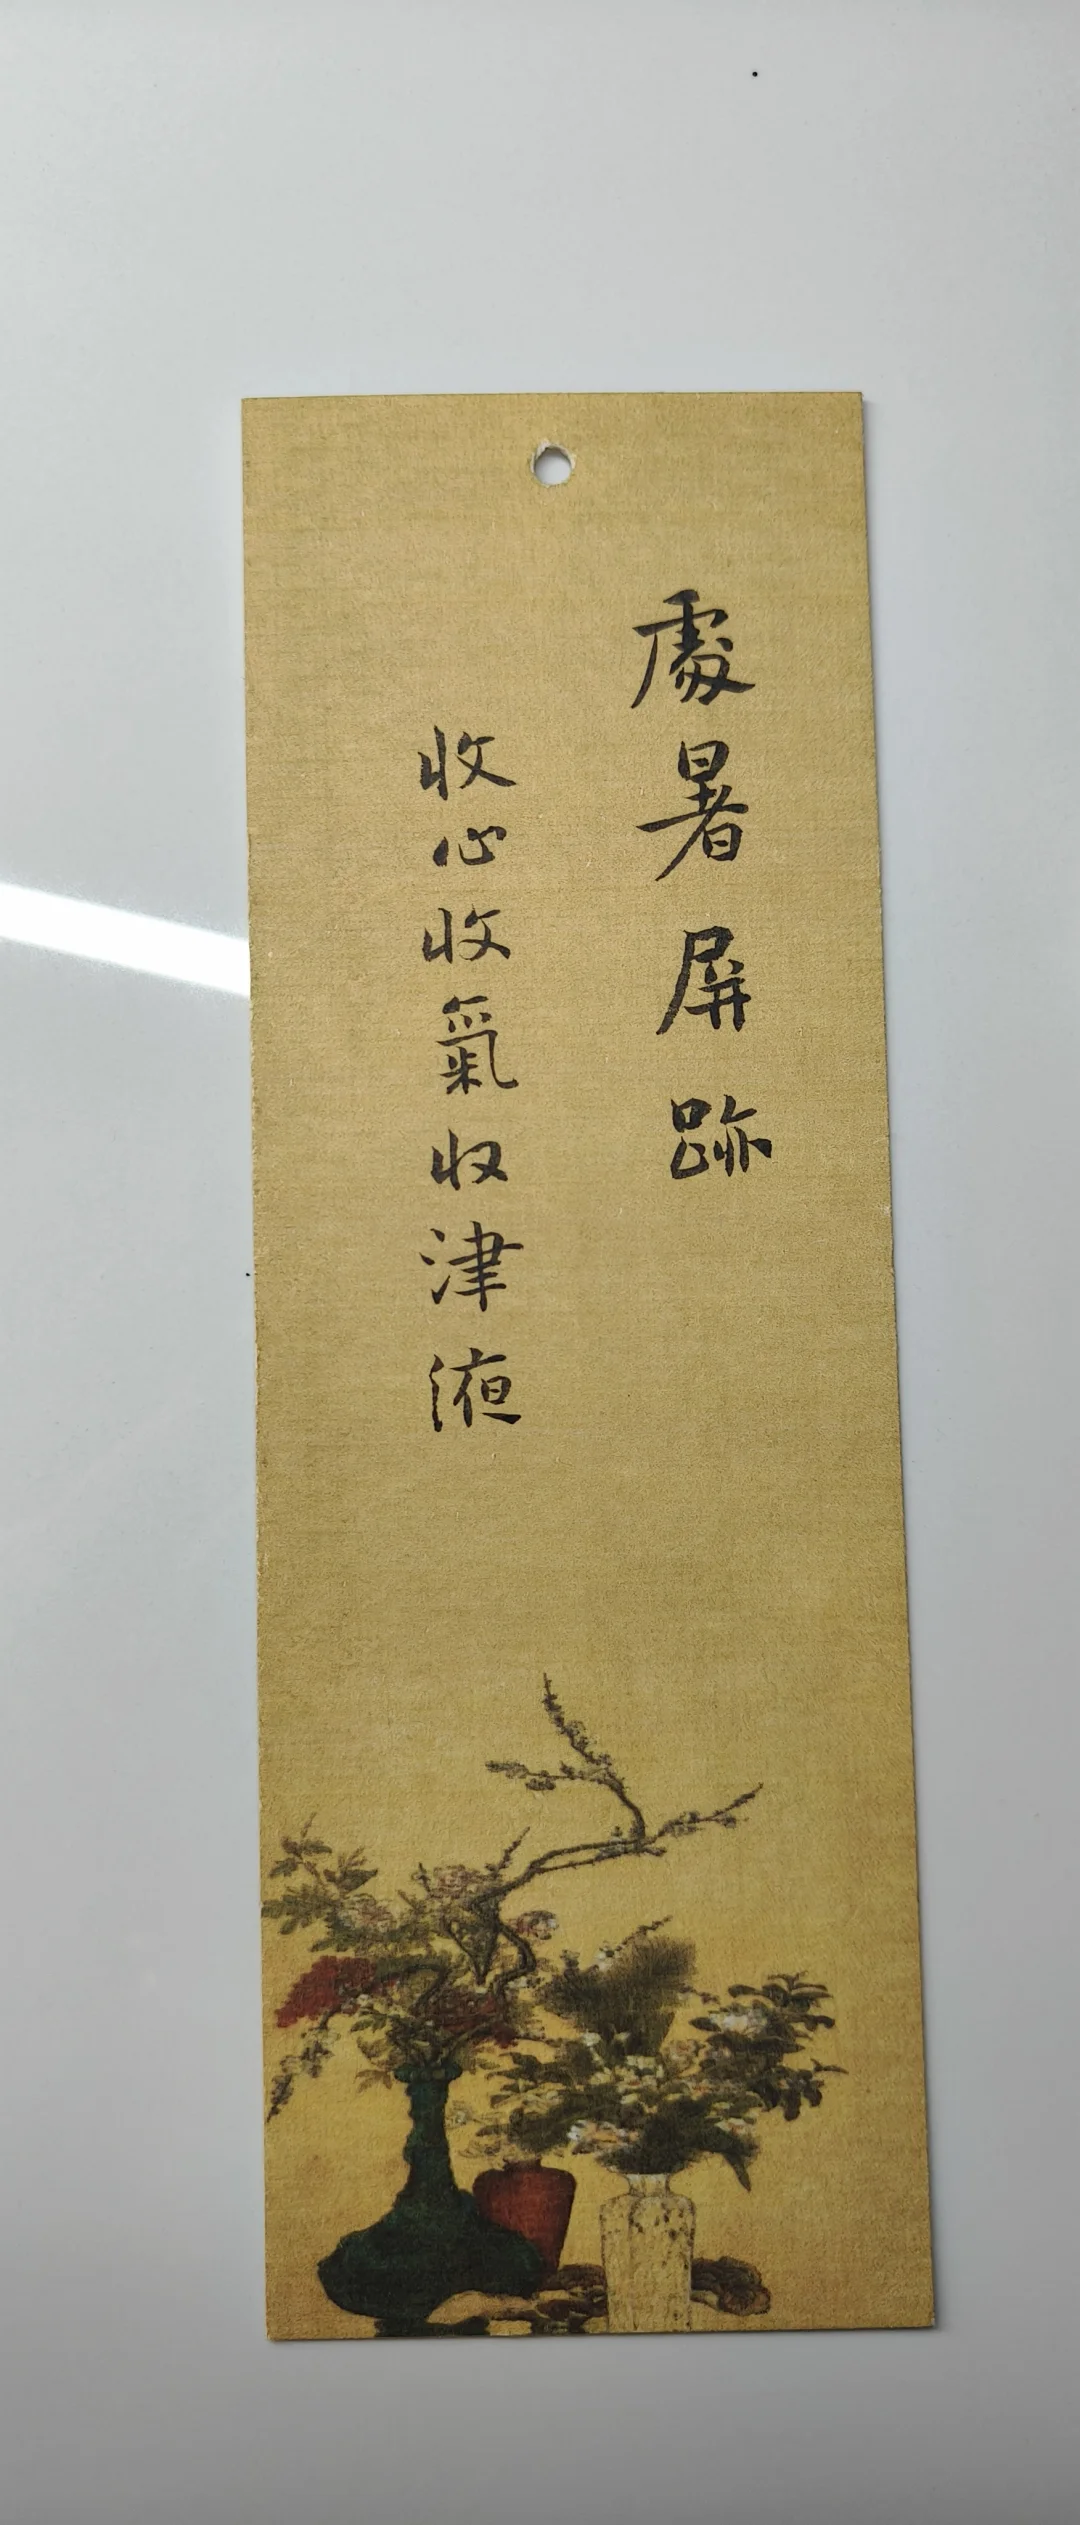 處暑屏跡
收心收氣收津液